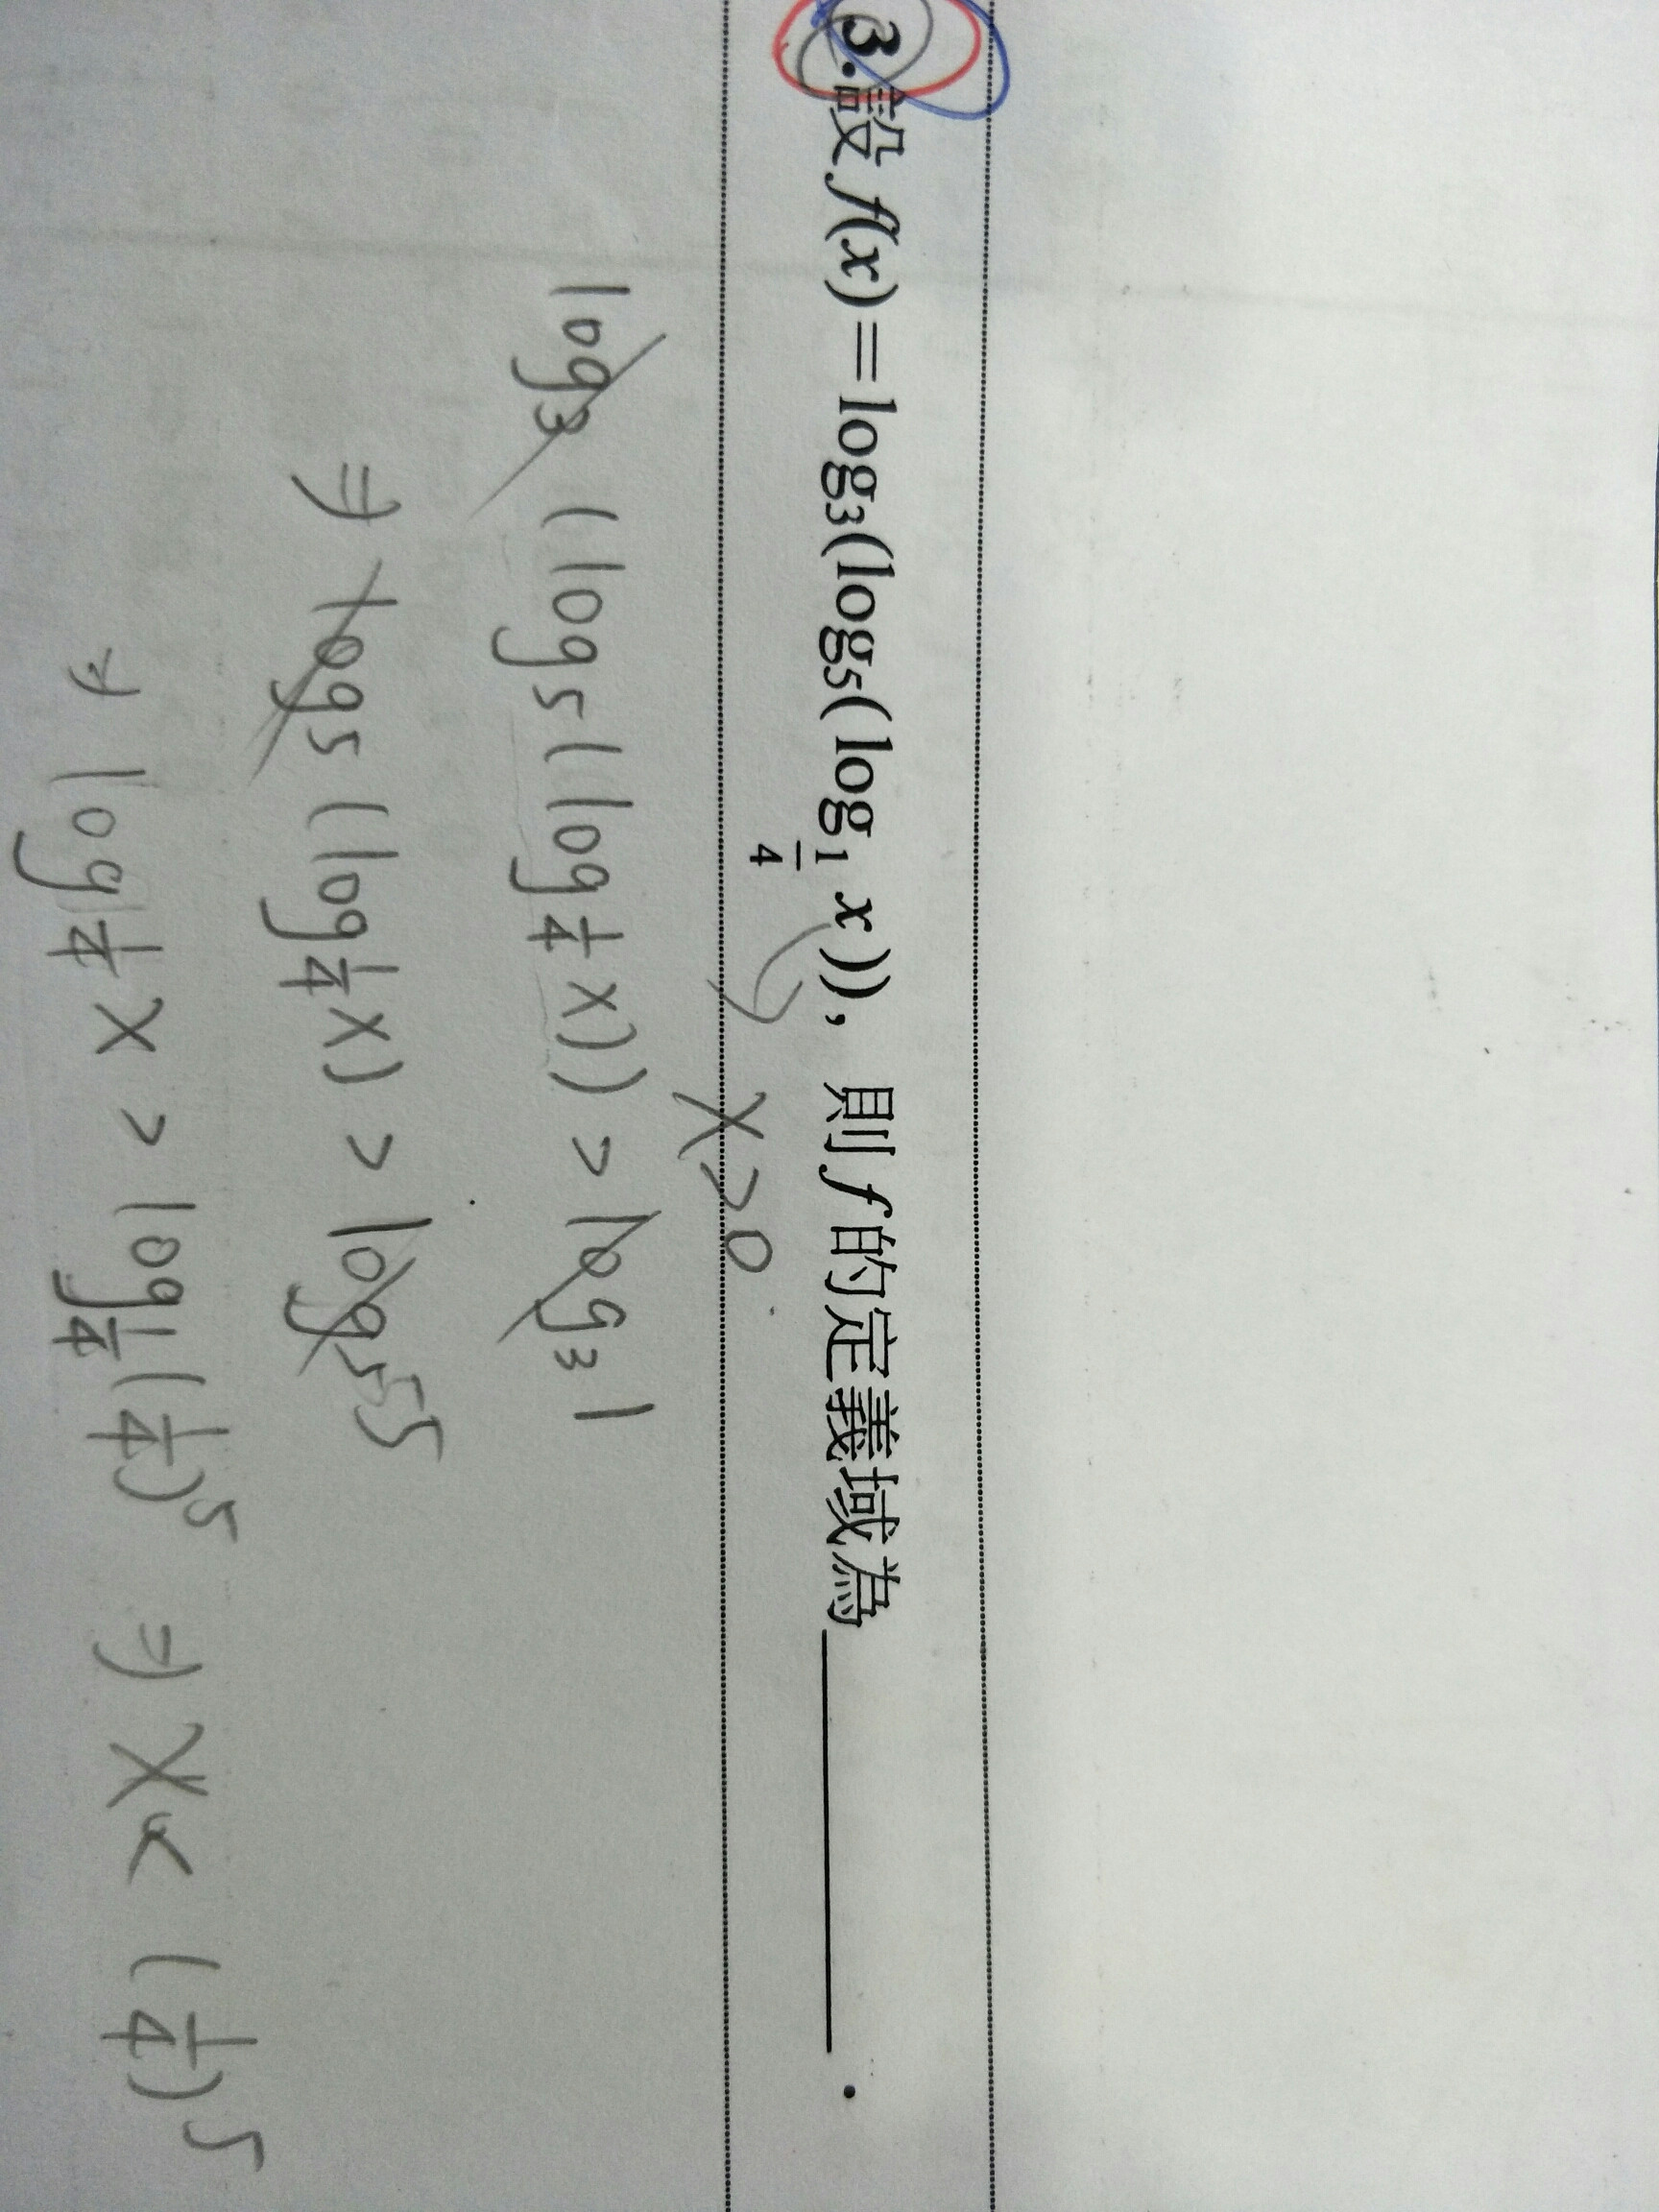 3.設 f(x)=log₃(log₅(log_{1/4} x)), 則 f 的定義域為________.
x>0
log₃(log₅(log_{1/4} x))>log₃1
⇒ log₅(log_{1/4} x)>log₅5
⇒ log_{1/4} x > log_{1/4}(1/4)⁵ ⇒ x < (1/4)⁵